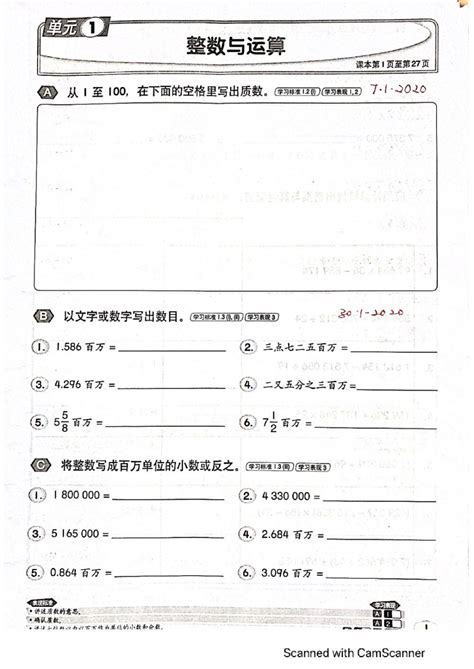 单元 1
整数与运算
课本第1页至第27页
A 从 1 至 100，在下面的空格里写出质数。 学习标准 1.2 (i) 学习表现 1, 2 7·1·2020
B 以文字或数字写出数目。 学习标准 1.3 学习表现 3 30·1·2020
1. 1.586 百万 = 2. 三点七二五百万 =
3. 4.296 百万 = 4. 二又五分之三百万 =
5. 5 5/8 百万 = 6. 7 1/2 百万 =
C 将整数写成百万单位的小数或反之。 学习标准 1.3 (iii) 学习表现 3
1. 1 800 000 = 2. 4 330 000 =
3. 5 165 000 = 4. 2.684 百万 =
5. 0.864 百万 = 6. 3.096 百万 =
表现标准 学习表现
• 讲述质数的意思。 A 1
• 确认质数。 A 2
1
Scanned with CamScanner